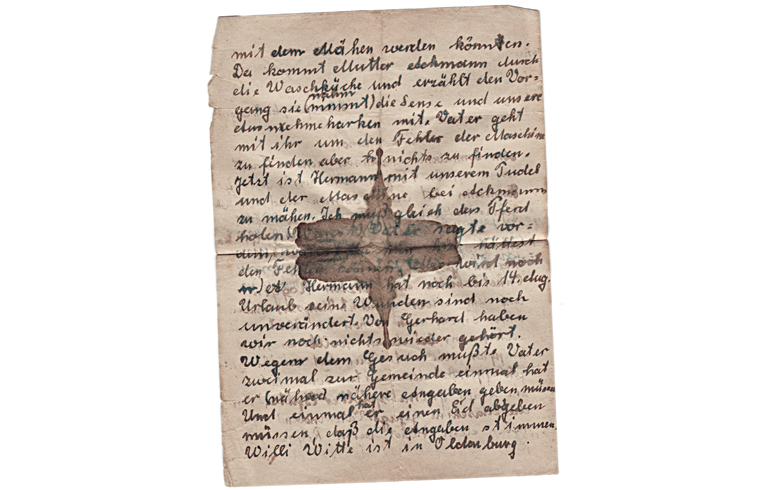 mit dem Mähen werden könnten.
Da kommt Mutter Aschmann durch
die Waschküche und erzählt den Vor-
nahm
gang sie (nimmt) die Sense und unsere
Ausnehmeharken mit. Vater geht
mit ihr um den Fehler der Maschine
zu finden aber nichts zu finden.
Jetzt ist Hermann mit unserem Pudel
und der Maschine bei Aschmann
zu mähen. Ich muß gleich das Pferd
holen Vater sagte vor-
hättest
den wird noch
er. Hermann hat noch bis 14. Aug.
Urlaub seine Wunden sind noch
unverändert. Von Gerhard haben
wir noch nichts wieder gehört.
Wegen dem Gesuch mußte Vater
zweimal zur Gemeinde einmal hat
er (nähred nähere Angaben geben müssen
hat
Und einmal er einen Eid abgeben
müssen, daß die Angaben stimmen.
Willi Witte ist in Oldenburg.